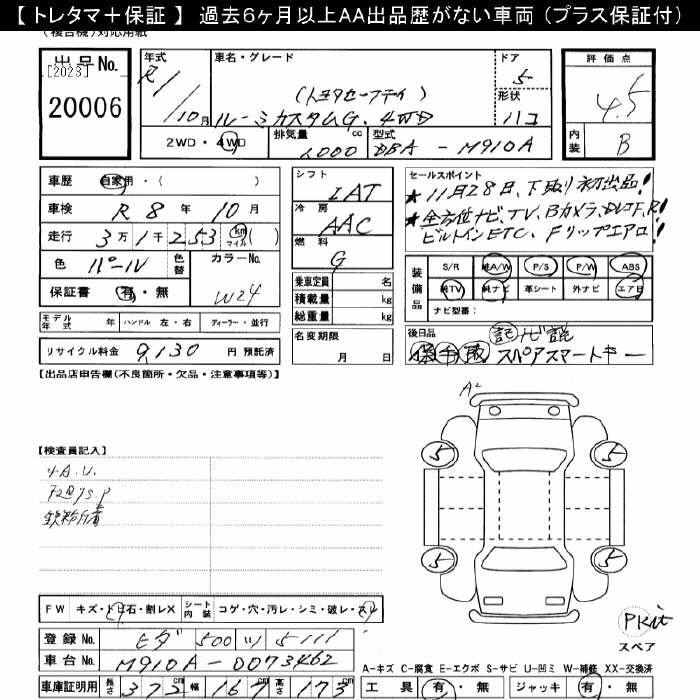 【 トレタマ＋保証 】 過去６ヶ月以上AA出品歴がない車両（プラス保証付）
(複合機)対応用紙
出品No.
[2023]
20006
年式
R1/10月
車名・グレード
(トヨタセーフティ)
ルーミーカスタムG. 4WD
ドア
5
形状
ハコ
評価点
4.5
内装
B
2WD・4WD
排気量
1000 cc
型式
DBA - M910A
車歴
自家用・（ ）
車検
R 8 年 10 月
走行
3万1千253 km マイル ( )
色
パール
色替
カラーNo.
W24
保証書
有・無
シフト
IAT
冷房
AAC
燃料
G
乗車定員 名
積載量 kg
総重量 kg
セールスポイント
★11月28日、下取り初出品！
★全方位ナビ、TV、Bカメラ、DレコF.R！
ビルトインETC、Fリップエアロ！
装備品
S/R 純A/W P/S P/W ABS
純TV 純ナビ 革シート 外ナビ エアB
ナビ型番：
モデル年式 年 ハンドル 左・右 ディーラー・並行
リサイクル料金 9,130 円 預託済
名変期限
月 日
後日品
記 ナビ説
保 手 取 スペアスマートキー
【出品店申告欄(不良箇所・欠品・注意事項等)】
【検査員記入】
A2
5
5
5
5
PKit
スペア
FW キズ・トビ石・割レX シート内装 コゲ・穴・汚レ・シミ・破レ・スレ
登録No.
車台No.
M910A-0073462
車庫証明用 長さ 372 cm 幅 167 cm 高さ 173 cm
A-キズ C-腐食 E-エクボ S-サビ U-凹ミ W-補修 XX-交換済
工具 有・無 ジャッキ 有・無